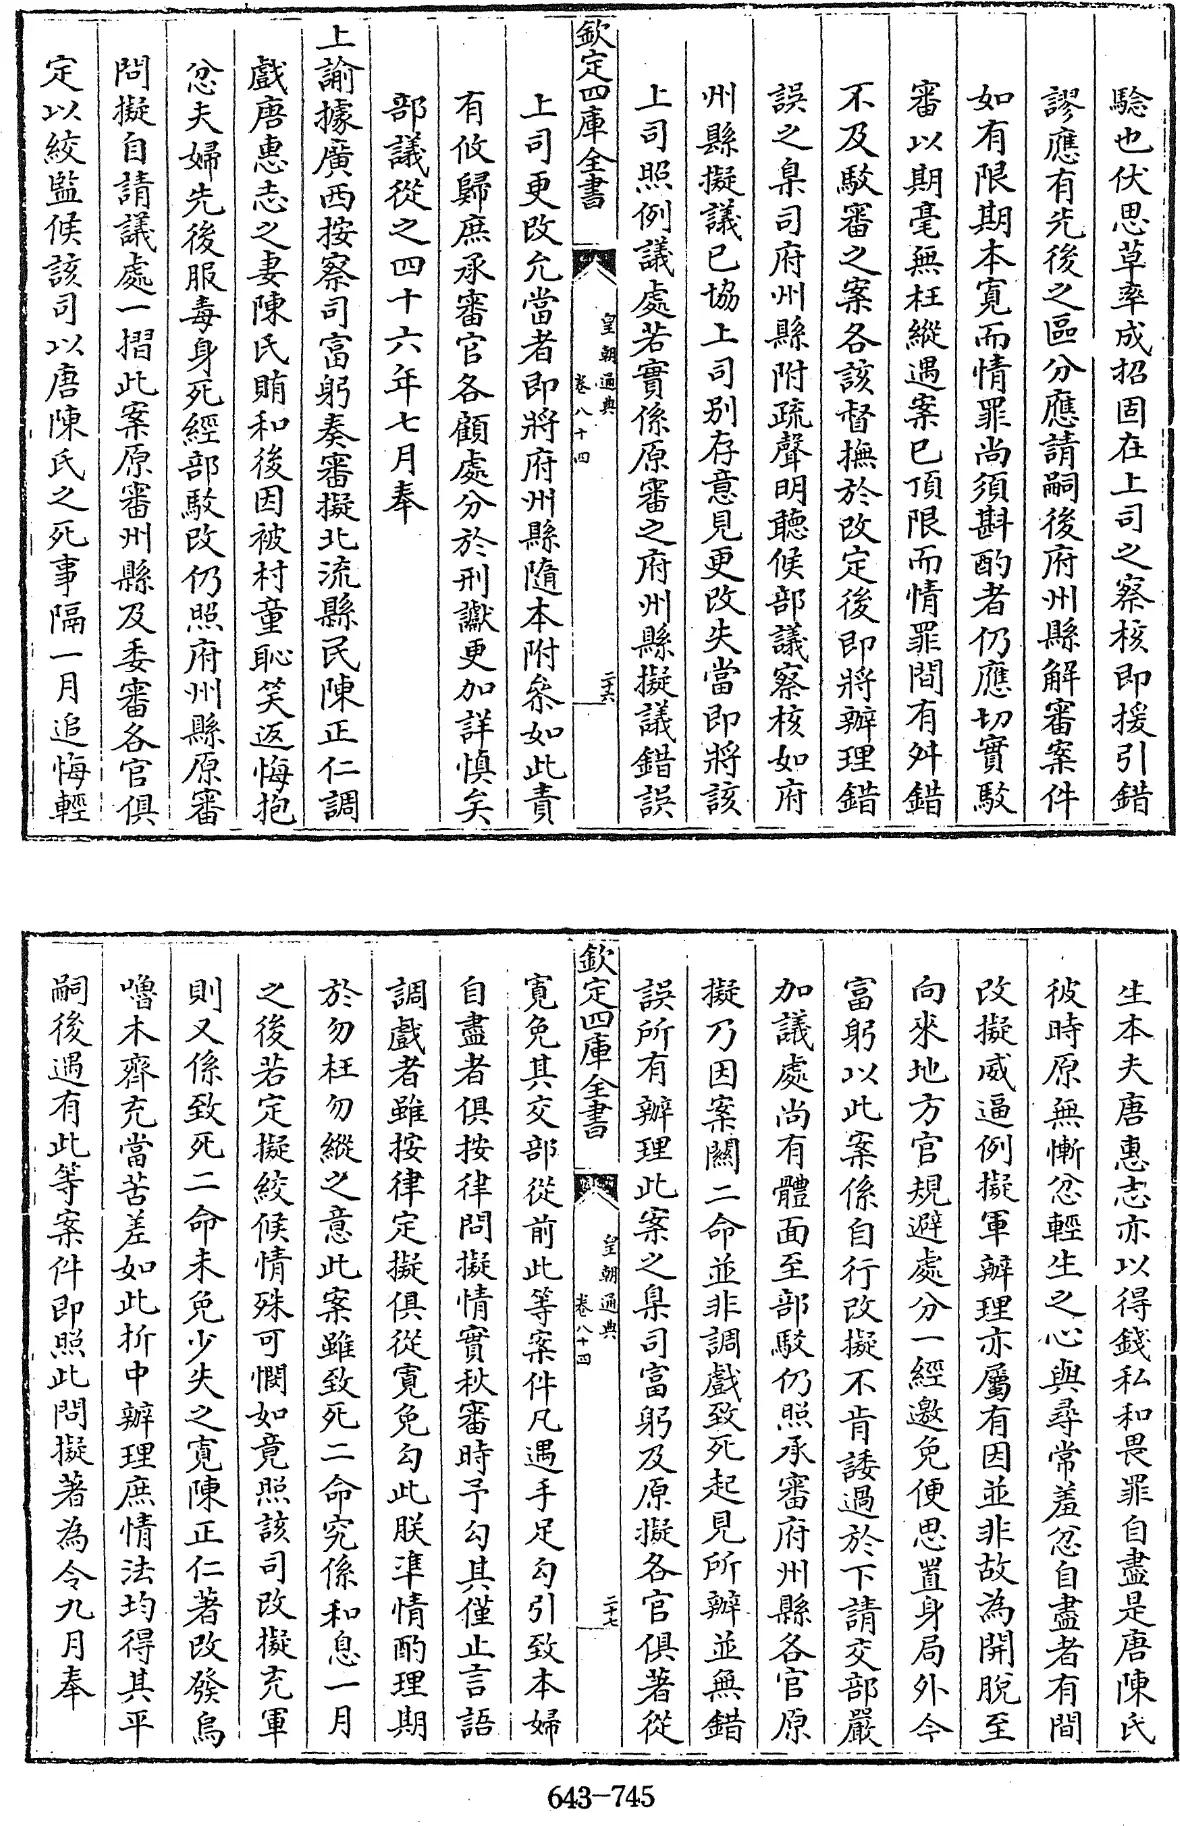 驗也伏思草率成招固在上司之察核即援引錯
謬應有先後之區分應請嗣後府州縣解審案件
如有限期本寬而情罪尚須斟酌者仍應切實駁
審以期毫無枉縱遇案已頂限而情罪間有舛錯
不及駁審之案各該督撫於改定後即將辦理錯
誤之臬司府州縣附疏聲明聽候部議察核如府
州縣擬議已協上司別存意見更改失當即將該
上司照例議處若實係原審之府州縣擬議錯誤
欽定四庫全書
皇朝通典
卷八十四
二十六
上司更改允當者即將府州縣隨本附叅如此責
有攸歸庶承審官各顧處分於刑讞更加詳慎矣
部議從之四十六年七月奉
上諭據廣西按察司富躬奏審擬北流縣民陳正仁調
戲唐惠志之妻陳氏賄和後因被村童恥笑返悔抱
忿夫婦先後服毒身死經部駁改仍照府州縣原審
問擬自請議處一摺此案原審州縣及委審各官俱
定以絞監候該司以唐陳氏之死事隔一月追悔輕
生本夫唐惠志亦以得錢私和畏罪自盡是唐陳氏
彼時原無慚忿輕生之心與尋常羞忿自盡者有間
改擬威逼例擬軍辦理亦屬有因並非故為開脫至
向來地方官規避處分一經邀免便思置身局外今
富躬以此案係自行改擬不肯諉過於下請交部嚴
加議處尚有體面至部駁仍照承審府州縣各官原
擬乃因案關二命並非調戲致死起見所辦並無錯
誤所有辦理此案之臬司富躬及原擬各官俱著從
欽定四庫全書
皇朝通典
卷八十四
二十七
寬免其交部從前此等案件凡遇手足勾引致本婦
自盡者俱按律問擬情實秋審時予勾其僅止言語
調戲者雖按律定擬俱從寬免勾此朕準情酌理期
於勿枉勿縱之意此案雖致死二命究係和息一月
之後若定擬絞候情殊可憫如竟照該司改擬充軍
則又係致死二命未免少失之寬陳正仁著改發烏
嚕木齊充當苦差如此折中辦理庶情法均得其平
嗣後遇有此等案件即照此問擬著為令九月奉
643-745